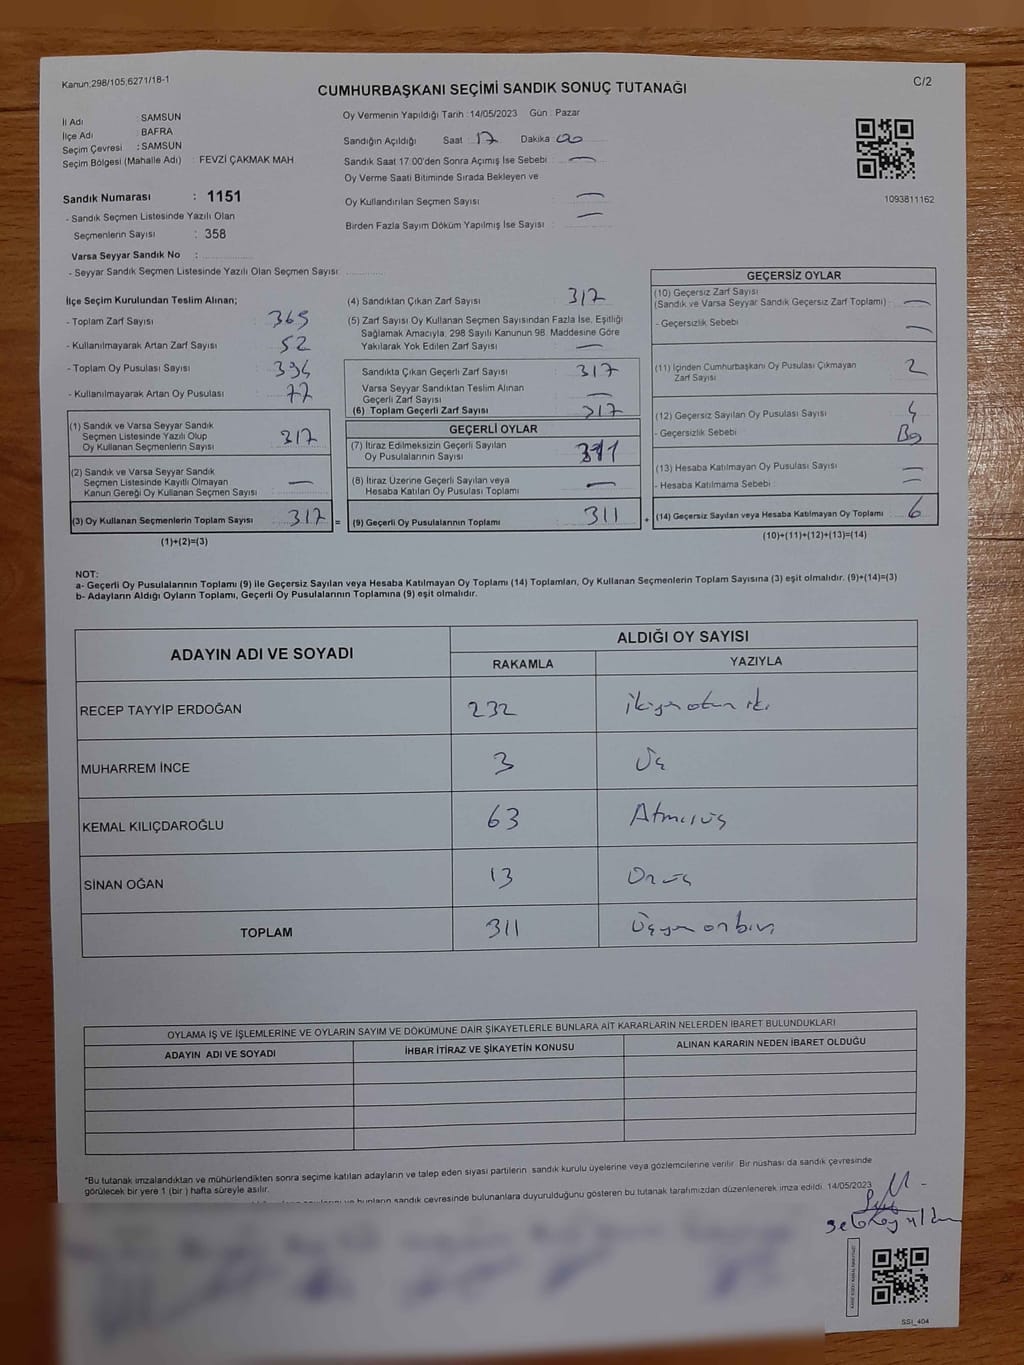 Kanun;298/105,6271/18-1
C/2
CUMHURBAŞKANI SEÇİMİ SANDIK SONUÇ TUTANAĞI
İl Adı : SAMSUN
İlçe Adı : BAFRA
Seçim Çevresi : SAMSUN
Seçim Bölgesi (Mahalle Adı) : FEVZİ ÇAKMAK MAH
Oy Vermenin Yapıldığı Tarih :14/05/2023 Gün : Pazar
Sandığın Açıldığı Saat : 17 Dakika : 00
Sandık Saat 17.00'den Sonra Açımış İse Sebebi : —
Oy Verme Saati Bitiminde Sırada Bekleyen ve
Oy Kullandırılan Seçmen Sayısı : —
Birden Fazla Sayım Döküm Yapılmış İse Sayısı : —
1093811162
Sandık Numarası : 1151
- Sandık Seçmen Listesinde Yazılı Olan
Seçmenlerin Sayısı : 358
Varsa Seyyar Sandık No :
- Seyyar Sandık Seçmen Listesinde Yazılı Olan Seçmen Sayısı
İlçe Seçim Kurulundan Teslim Alınan;
- Toplam Zarf Sayısı : 369
- Kullanılmayarak Artan Zarf Sayısı : 52
- Toplam Oy Pusulası Sayısı : 394
- Kullanılmayarak Artan Oy Pusulası : 77
(1) Sandık ve Varsa Seyyar Sandık
Seçmen Listesinde Yazılı Olup
Oy Kullanan Seçmenlerin Sayısı 317
(2) Sandık ve Varsa Seyyar Sandık
Seçmen Listesinde Kayıtlı Olmayan
Kanun Gereği Oy Kullanan Seçmen Sayısı —
(3) Oy Kullanan Seçmenlerin Toplam Sayısı 317 =
(1)+(2)=(3)
(4) Sandıktan Çıkan Zarf Sayısı : 317
(5) Zarf Sayısı Oy Kullanan Seçmen Sayısından Fazla İse, Eşitliği
Sağlamak Amacıyla, 298 Sayılı Kanunun 98. Maddesine Göre
Yakılarak Yok Edilen Zarf Sayısı —
Sandıkta Çıkan Geçerli Zarf Sayısı : 317
Varsa Seyyar Sandıktan Teslim Alınan
Geçerli Zarf Sayısı : —
(6) Toplam Geçerli Zarf Sayısı : 317
GEÇERLİ OYLAR
(7) İtiraz Edilmeksizin Geçerli Sayılan
Oy Pusulalarının Sayısı 311
(8) İtiraz Üzerine Geçerli Sayılan veya
Hesaba Katılan Oy Pusulası Toplamı —
(9) Geçerli Oy Pusulalarının Toplamı 311 +
GEÇERSİZ OYLAR
(10) Geçersiz Zarf Sayısı
(Sandık ve Varsa Seyyar Sandık Geçersiz Zarf Toplamı) : —
- Geçersizlik Sebebi : —
(11) İçinden Cumhurbaşkanı Oy Pusulası Çıkmayan
Zarf Sayısı 2
(12) Geçersiz Sayılan Oy Pusulası Sayısı : 4
- Geçersizlik Sebebi :
(13) Hesaba Katılmayan Oy Pusulası Sayısı : —
- Hesaba Katılmama Sebebi : —
(14) Geçersiz Sayılan veya Hesaba Katılmayan Oy Toplamı : 6
(10)+(11)+(12)+(13)=(14)
NOT:
a- Geçerli Oy Pusulalarının Toplamı (9) ile Geçersiz Sayılan veya Hesaba Katılmayan Oy Toplamı (14) Toplamları, Oy Kullanan Seçmenlerin Toplam Sayısına (3) eşit olmalıdır. (9)+(14)=(3)
b- Adayların Aldığı Oyların Toplamı, Geçerli Oy Pusulalarının Toplamına (9) eşit olmalıdır.
ADAYIN ADI VE SOYADI
ALDIĞI OY SAYISI
RAKAMLA YAZIYLA
RECEP TAYYİP ERDOĞAN 232 ikiyüz otuz iki
MUHARREM İNCE 3 Üç
KEMAL KILIÇDAROĞLU 63 Atmış üç
SİNAN OĞAN 13 On üç
TOPLAM 311 Üçyüz onbir
OYLAMA İŞ VE İŞLEMLERİNE VE OYLARIN SAYIM VE DÖKÜMÜNE DAİR ŞİKAYETLERLE BUNLARA AİT KARARLARIN NELERDEN İBARET BULUNDUKLARI
ADAYIN ADI VE SOYADI İHBAR İTİRAZ VE ŞİKAYETİN KONUSU ALINAN KARARIN NEDEN İBARET OLDUĞU
"Bu tutanak imzalandıktan ve mühürlendikten sonra seçime katılan adayların ve talep eden siyasi partilerin sandık kurulu üyelerine veya gözlemcilerine verilir. Bir nüshası da sandık çevresinde
görülecek bir yere 1 (bir ) hafta süreyle asılır.
bunların sandık çevresinde bulunanlara duyurulduğunu gösteren bu tutanak tarafımızdan düzenlenerek imza edildi. 14/05/2023
SSİ_404